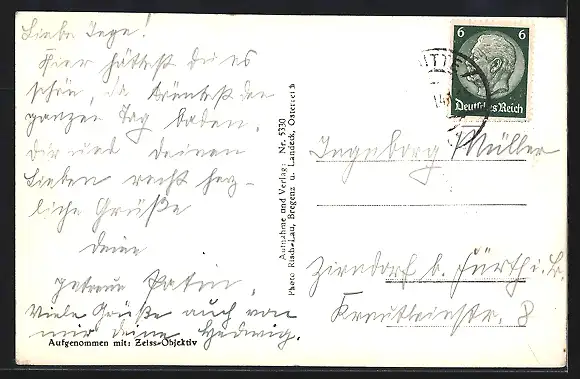 Liebe Inge!
Hier hättest du es
schön, da könntest den
ganzen Tag baden.
Dir und deinen
Lieben recht herz-
liche Grüße
deine
getreue Patin,
Viele Grüße auch von
mir deine Hedwig.
Aufgenommen mit: Zeiss-Objektiv
Aufnahme und Verlag: Nr. 5330
Photo Risch-Lau, Bregenz u. Landeck, Österreich
6 6
Deutsches Reich
Ingeborg Müller
Zirndorf b. Fürth i. B.
Kreutleinstr. 8